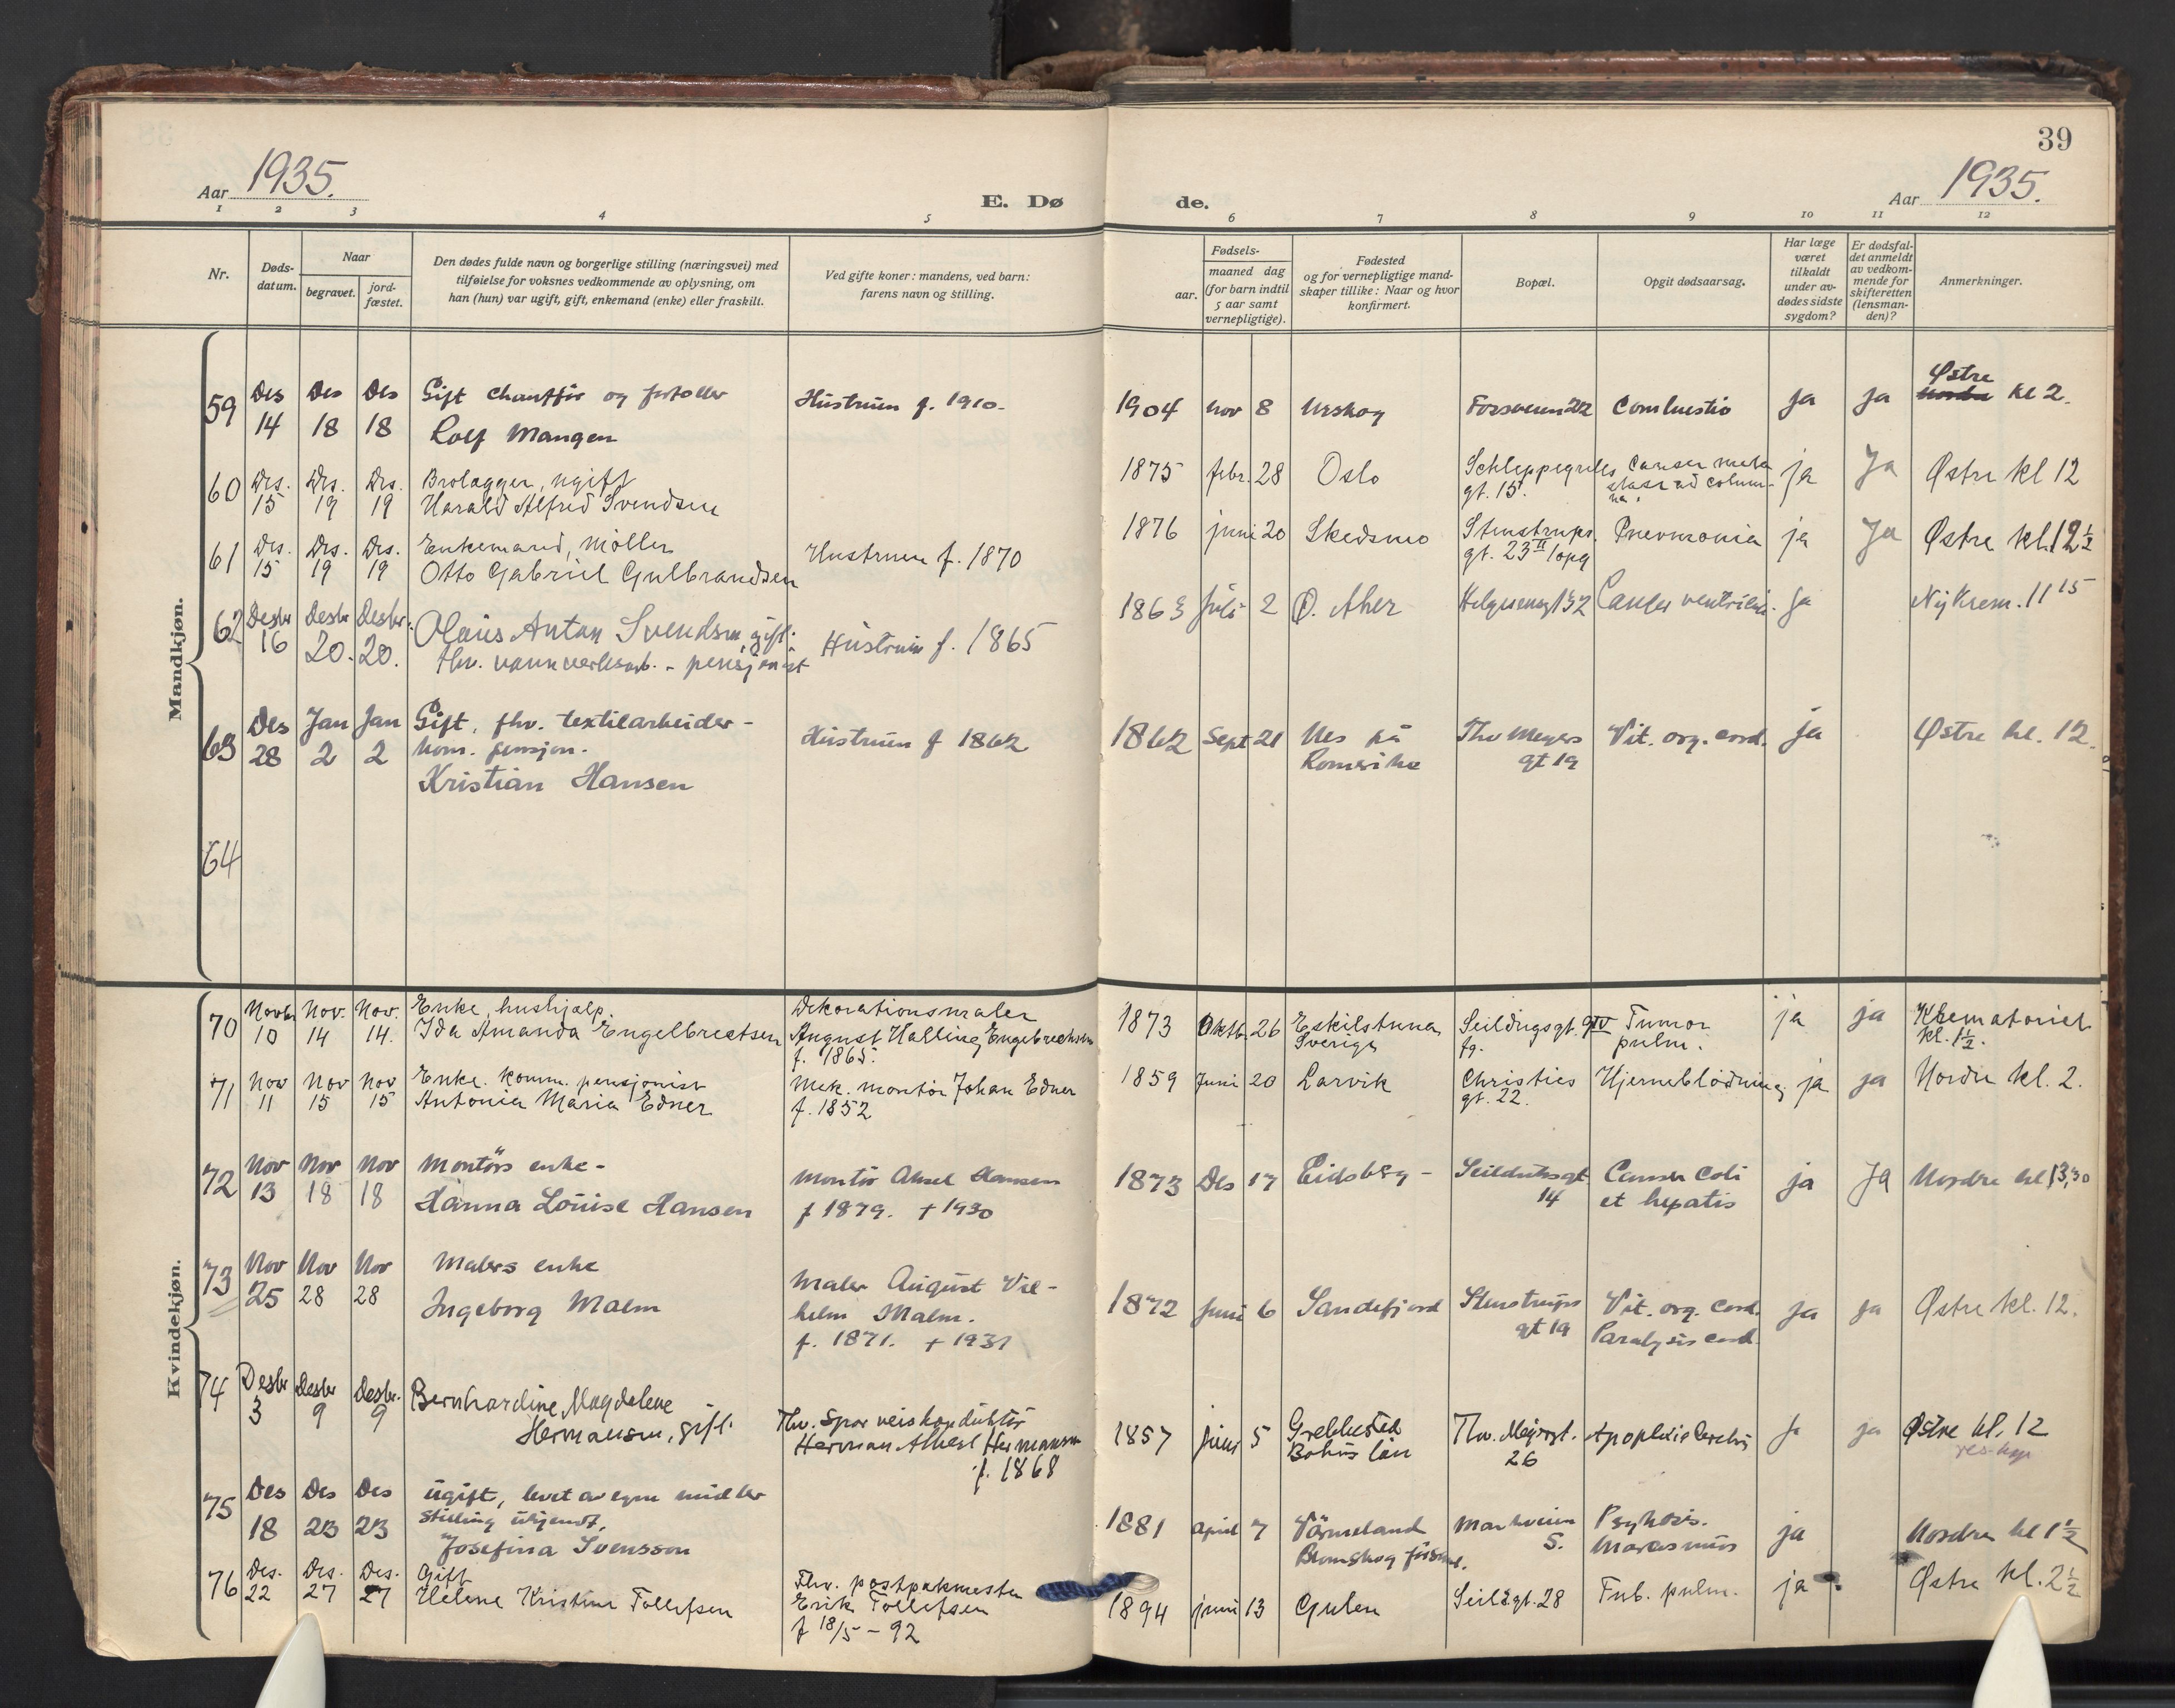 39
Aar 1935.
E. Dø
de.
Aar 1935.
1 2 3 4 5 6 7 8 9 10 11 12
Nr.
Døds-
datum.
Naar
begravet.
jord-
fæstet.
Den dødes fulde navn og borgerlige stilling (næringsvei) med
tilføielse for voksnes vedkommende av oplysning, om
han (hun) var ugift, gift, enkemand (enke) eller fraskilt.
Ved gifte koner: mandens, ved barn:
farens navn og stilling.
Fødsels-
aar.
maaned dag
(for barn indtil
5 aar samt
vernepligtige).
Fødested
og for vernepligtige mand-
skaper tillike: Naar og hvor
konfirmert.
Bopæl.
Opgit dødsaarsag.
Har læge
været
tilkaldt
under av-
dødes sidste
sygdom?
Er dødsfal-
det anmeldt
av vedkom-
mende for
skifteretten
(lensman-
den)?
Anmerkninger.
Mandkjøn.
59 Des 14 Des 18 Des 18
Gift chauffør og
Rolf Mangen
Hustruen f. 1910.
1904 nov 8 Urskog
Combustio ja ja Østre kl 2.
60 Des. 15 Des. 19 Des. 19
Brolægger, ugift
Harald Alfred Svendsen
1875 febr. 28 Oslo
Schleppegrells
gt. 15.
Cancer meta
stase ad colum-
na. ja Ja Østre kl 12
61 Des. 15 Des. 19 Des. 19
Enkemand, møller
Otto Gabriel Gulbrandsen
Hustruen f. 1870
1876 juni 20 Skedsmo
Stenstrups.
gt. 23 II 1 opg
Pneumonia ja Ja Østre kl. 12½
62 Desbr 16 Desbr 20. Desbr. 20.
Olaus Anton Svendsen gift.
fhv. vannverksarb. - pensjonist
Hustruen f. 1865
1863 Juli 2 Ø. Aker
Cancer ventriculi. ja Ny Krem. 11 15
63 Des 28 Jan 2 Jan 2
Gift, fhv. textilarbeider -
kom. pensjon.
Kristian Hansen
Hustruen f 1862
1862 Sept 21
Nes på
Romerike
Thv Meyers
gt 19
Vit. org. cord. ja Østre kl. 12.
64
Kvindekjøn.
70 Novbr 10 Nov. 14 Nov. 14.
Enke, hushjælp.
Ida Amanda Engelbretsen
Dekorationsmaler
August Halling Engebrethsen
f. 1865.
1873 Oktb. 26
Eskilstuna
Sverige
Seildugsgt. 9 IV
fg.
Tumor
pulm. ja ja
Krematoriet
kl. 1½.
71 Nov 11 Nov 15 Nov 15
Enke. komm. pensjonist
Antonia Maria Edner
Mek. montør Johan Edner
f. 1852
1859 Juni 20 Larvik
Christies
gt. 22.
Hjerneblødning ja ja Nordre kl. 2.
72 Nov 13 Nov 18 Nov 18
Montørs enke -
Hanna Louise Hansen
Montør Aksel Hansen
f 1879. + 1930
1873 Des 17 Eidsberg -
Seildugsgt
14
Cancer coli
et hepatis ja Ja Nordre kl 13,30
73 Nov 25 Nov 28 Nov 28
Malers enke
Ingeborg Malm
Maler August Vil-
helm Malm.
f. 1871. + 1931
1872 Juni 6 Sandefjord
Stenstrups
gt 19
Vit. org. cord.
Paralysis cord. ja ja Østre kl. 12.
74 Desbr 3 Desbr 9 Desbr. 9
Bernhardine Magdalene
Hermansen, gift.
Fhv. sporveiskonduktør
Herman Albert Hermansen
f. 1868
1857 juni 5
Grebbestad
Bohus län
Thv. Meyersgt.
26
Apoplexia cerebri ja ja Østre kl. 12
75 Des 18 Des 23 Des 23
ugift, levet av egne midler
stilling ukjendt,
Josefina Svensson
1881 april 7
Värmeland
Blomskog
Markveien
5.
Psykosis.
Marasmus ja Nordre kl 1½
76 Des. 22 Des. 27 Des. 27
Gift
Helene Kristine Tollefsen
Fhv. postpakmester
Erik Tollefsen
f 18/5 - 92
1894 juni 13 Gulen
Seildgt. 28
Tub. pulm. ja Østre kl. 2½